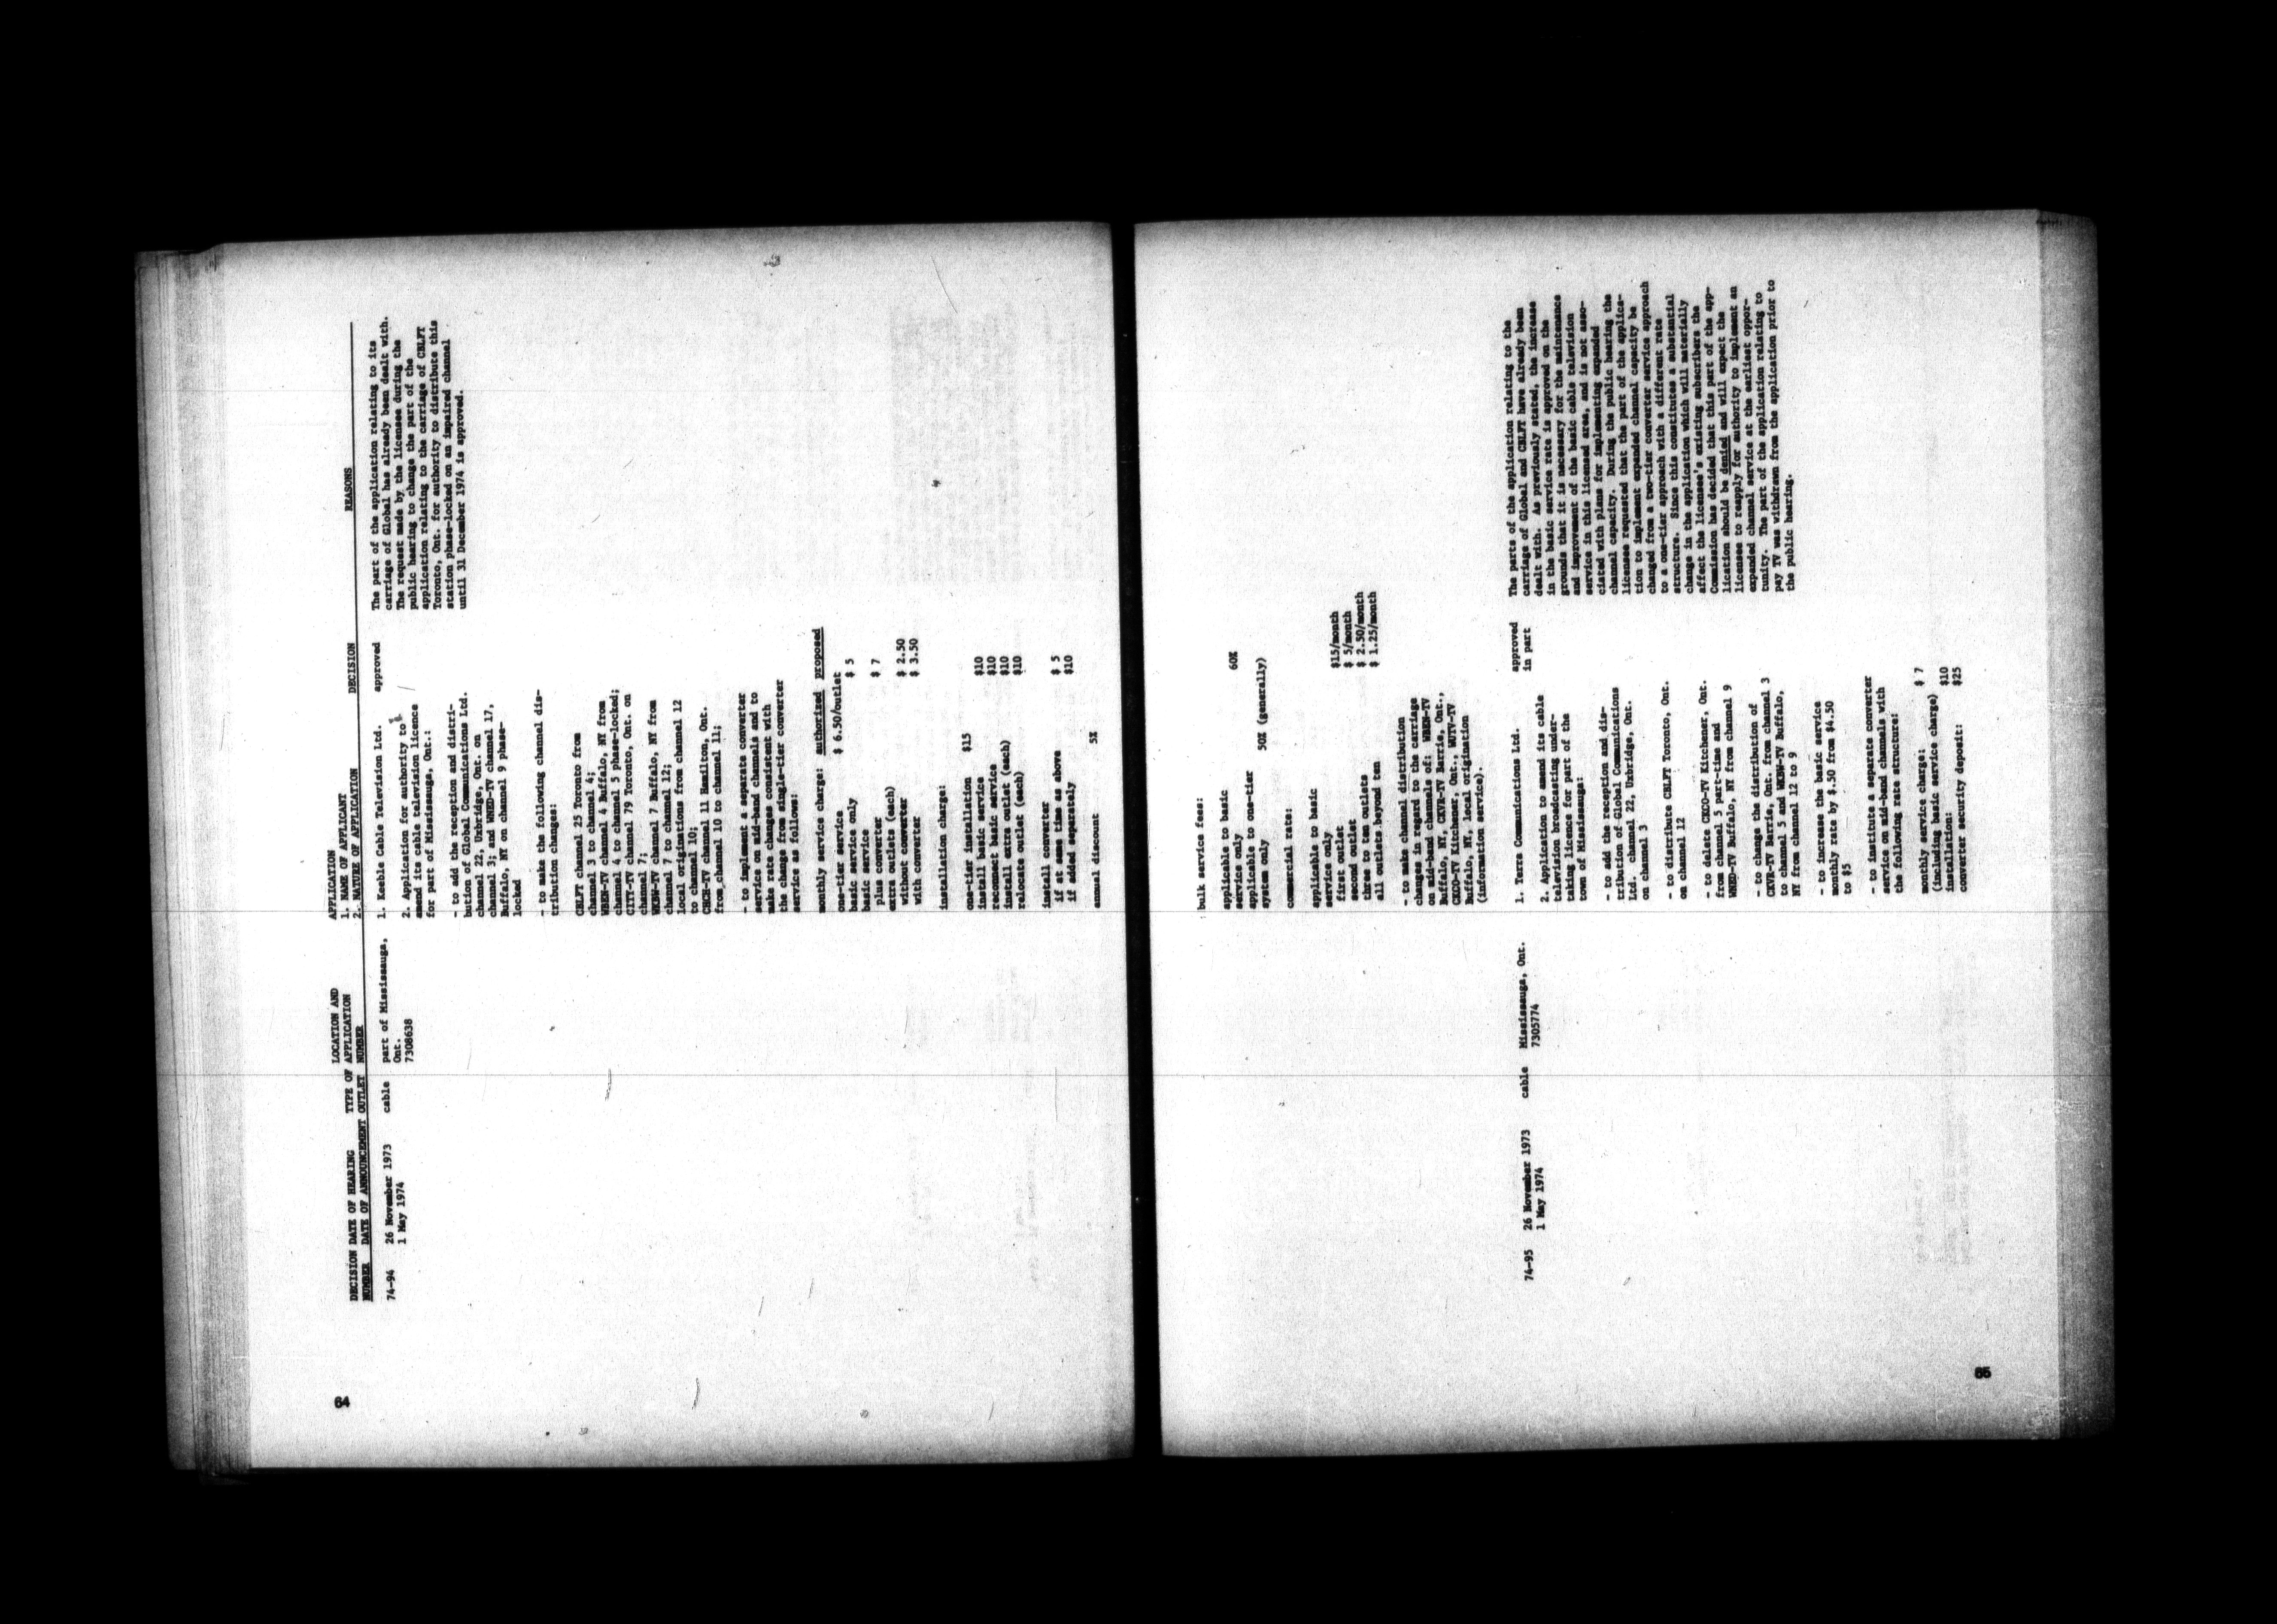 64
DECISION DATE OF HEARING TYPE OF LOCATION AND APPLICATION
NUMBER DATE OF ANNOUNCEMENT OUTLET APPLICATION NUMBER 1. NAME OF APPLICANT 2. NATURE OF APPLICATION DECISION REASONS
74-94 26 November 1973 cable part of Mississauga,
1 May 1974 Ont.
7308638
1. Keeble Cable Television Ltd. approved
2. Application for authority to
amend its cable television licence
for part of Mississauga, Ont.:
- to add the reception and distri-
bution of Global Communications Ltd.
channel 22, Uxbridge, Ont. on
channel 3; and WNED-TV channel 17,
Buffalo, NY on channel 9 phase-
locked
- to make the following channel dis-
tribution changes:
CBLFT channel 25 Toronto from
channel 3 to channel 4;
WBEN-TV channel 4 Buffalo, NY from
channel 4 to channel 5 phase-locked;
CITY-TV channel 79 Toronto, Ont. on
channel 7;
WKBW-TV channel 7 Buffalo, NY from
channel 7 to channel 12;
local originations from channel 12
to channel 10;
CHCH-TV channel 11 Hamilton, Ont.
from channel 10 to channel 11;
- to implement a separate converter
service on mid-band channels and to
make rate changes consistent with
the change from single-tier converter
service as follows:
monthly service charge: authorized proposed
one-tier service $ 6.50/outlet
basic service only $ 5
basic service
plus converter $ 7
extra outlets (each)
without converter $ 2.50
with converter $ 3.50
installation charge:
one-tier installation $15
install basic service $10
reconnect basic service $10
install extra outlet (each) $10
relocate outlet (each) $10
install converter
if at same time as above $ 5
if added separately $10
annual discount 5%
The part of the application relating to its
carriage of Global has already been dealt with.
The request made by the licensee during the
public hearing to change the part of the
application relating to the carriage of CBLFT
Toronto, Ont. for authority to distribute this
station phase-locked on an impaired channel
until 31 December 1974 is approved.
bulk service fees:
applicable to basic
service only 60%
applicable to one-tier
system only 50% (generally)
commercial rate:
applicable to basic
service only
first outlet $15/month
second outlet $ 5/month
three to ten outlets $ 2.50/month
all outlets beyond ten $ 1.25/month
- to make channel distribution
changes in regard to the carriage
on mid-band channels of: WBEN-TV
Buffalo, NY, CKVR-TV Barrie, Ont.,
CKCO-TV Kitchener, Ont., WUTV-TV
Buffalo, NY, local origination
(information service).
74-95 26 November 1973 cable Mississauga, Ont.
1 May 1974 7305774
1. Terra Communications Ltd. approved
in part
2. Application to amend its cable
television broadcasting under-
taking licence for part of the
town of Mississauga:
- to add the reception and dis-
tribution of Global Communications
Ltd. channel 22, Uxbridge, Ont.
on channel 3
- to distribute CBLFT Toronto, Ont.
on channel 12
- to delete CKCO-TV Kitchener, Ont.
from channel 5 part-time and
WNED-TV Buffalo, NY from channel 9
- to change the distribution of
CKVR-TV Barrie, Ont. from channel 3
to channel 5 and WKBW-TV Buffalo,
NY from channel 12 to 9
- to increase the basic service
monthly rate by $.50 from $4.50
to $5
- to institute a separate converter
service on mid-band channels with
the following rate structure:
monthly service charge: $ 7
(including basic service charge)
installation: $10
converter security deposit: $25
The parts of the application relating to the
carriage of Global and CBLFT have already been
dealt with. As previously stated, the increase
in the basic service rate is approved on the
grounds that it is necessary for the maintenance
and improvement of the basic cable television
service in this licensed area, and is not asso-
ciated with plans for implementing expanded
channel capacity. During the public hearing the
licensee requested that the part of the applica-
tion to implement expanded channel capacity be
changed from a two-tier converter service approach
to a one-tier approach with a different rate
structure. Since this constitutes a substantial
change in the application which will materially
affect the licensee's existing subscribers the
Commission has decided that this part of the app-
lication should be denied and will expect the
licensee to reapply for authority to implement an
expanded channel service at the earliest oppor-
tunity. The part of the application relating to
pay TV was withdrawn from the application prior to
the public hearing.
65